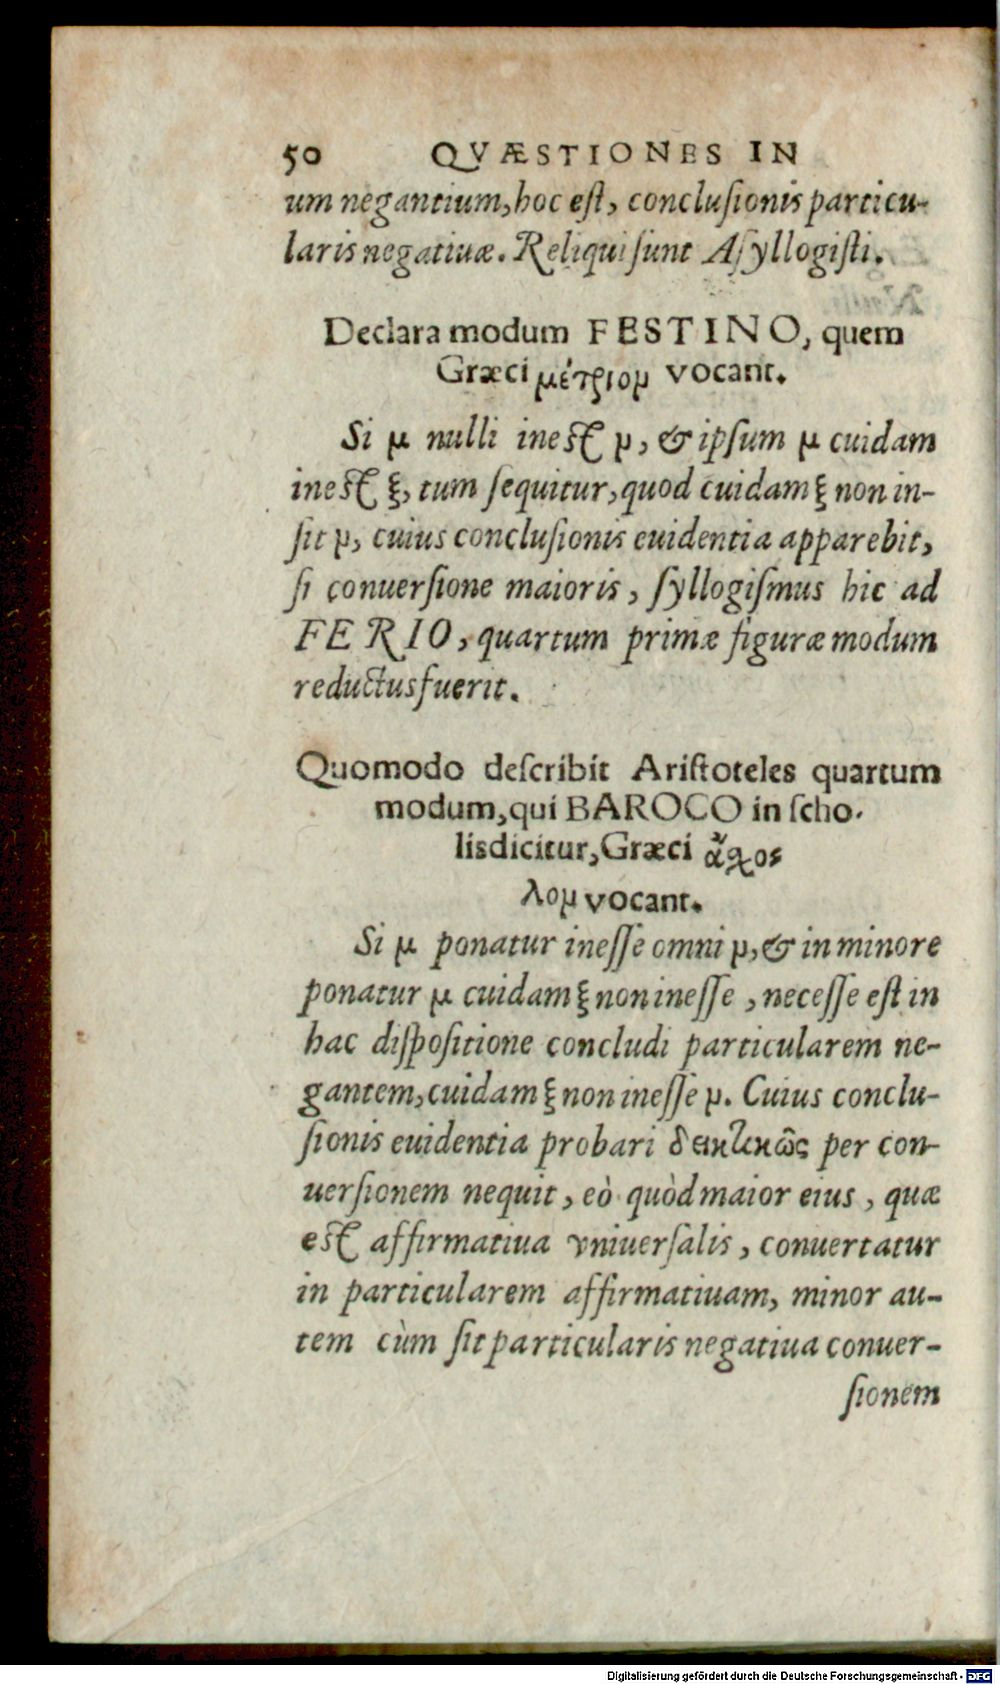 50 QVÆSTIONES IN
um negantium, hoc est, conclusionis particu-
laris negatiuæ. Reliqui sunt Asyllogisti.
Declara modum FESTINO, quem
Græci μέτριον vocant.
Si μ nulli inest ν, & ipsum μ cuidam
inest ξ, tum sequitur, quod cuidam ξ non in-
sit ν, cuius conclusionis euidentia apparebit,
si conuersione maioris, syllogismus hic ad
FERIO, quartum primæ figuræ modum
reductus fuerit.
Quomodo describit Aristoteles quartum
modum, qui BAROCO in scho-
lis dicitur, Græci ἄχο⸗
λον vocant.
Si μ ponatur inesse omni ν, & in minore
ponatur μ cuidam ξ non inesse, necesse est in
hac dispositione concludi particularem ne-
gantem, cuidam ξ non inesse ν. Cuius conclu-
sionis euidentia probari δεικτικῶς per con-
uersionem nequit, eò quòd maior eius, quæ
est affirmatiua vniuersalis, conuertatur
in particularem affirmatiuam, minor au-
tem cùm sit particularis negatiua conuer-
sionem
Digitalisierung gefördert durch die Deutsche Forschungsgemeinschaft - DFG